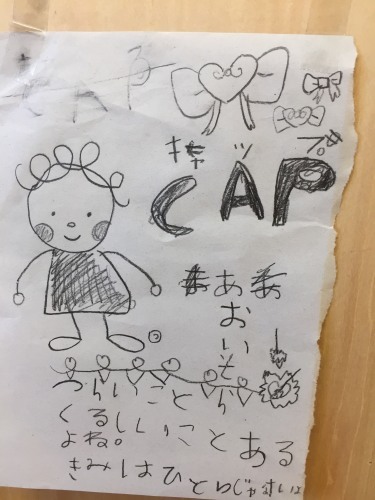 キャップ
CAP
あおいそら
つらいこと
くるしいことある
よね。
きみはひとりじゃないよ